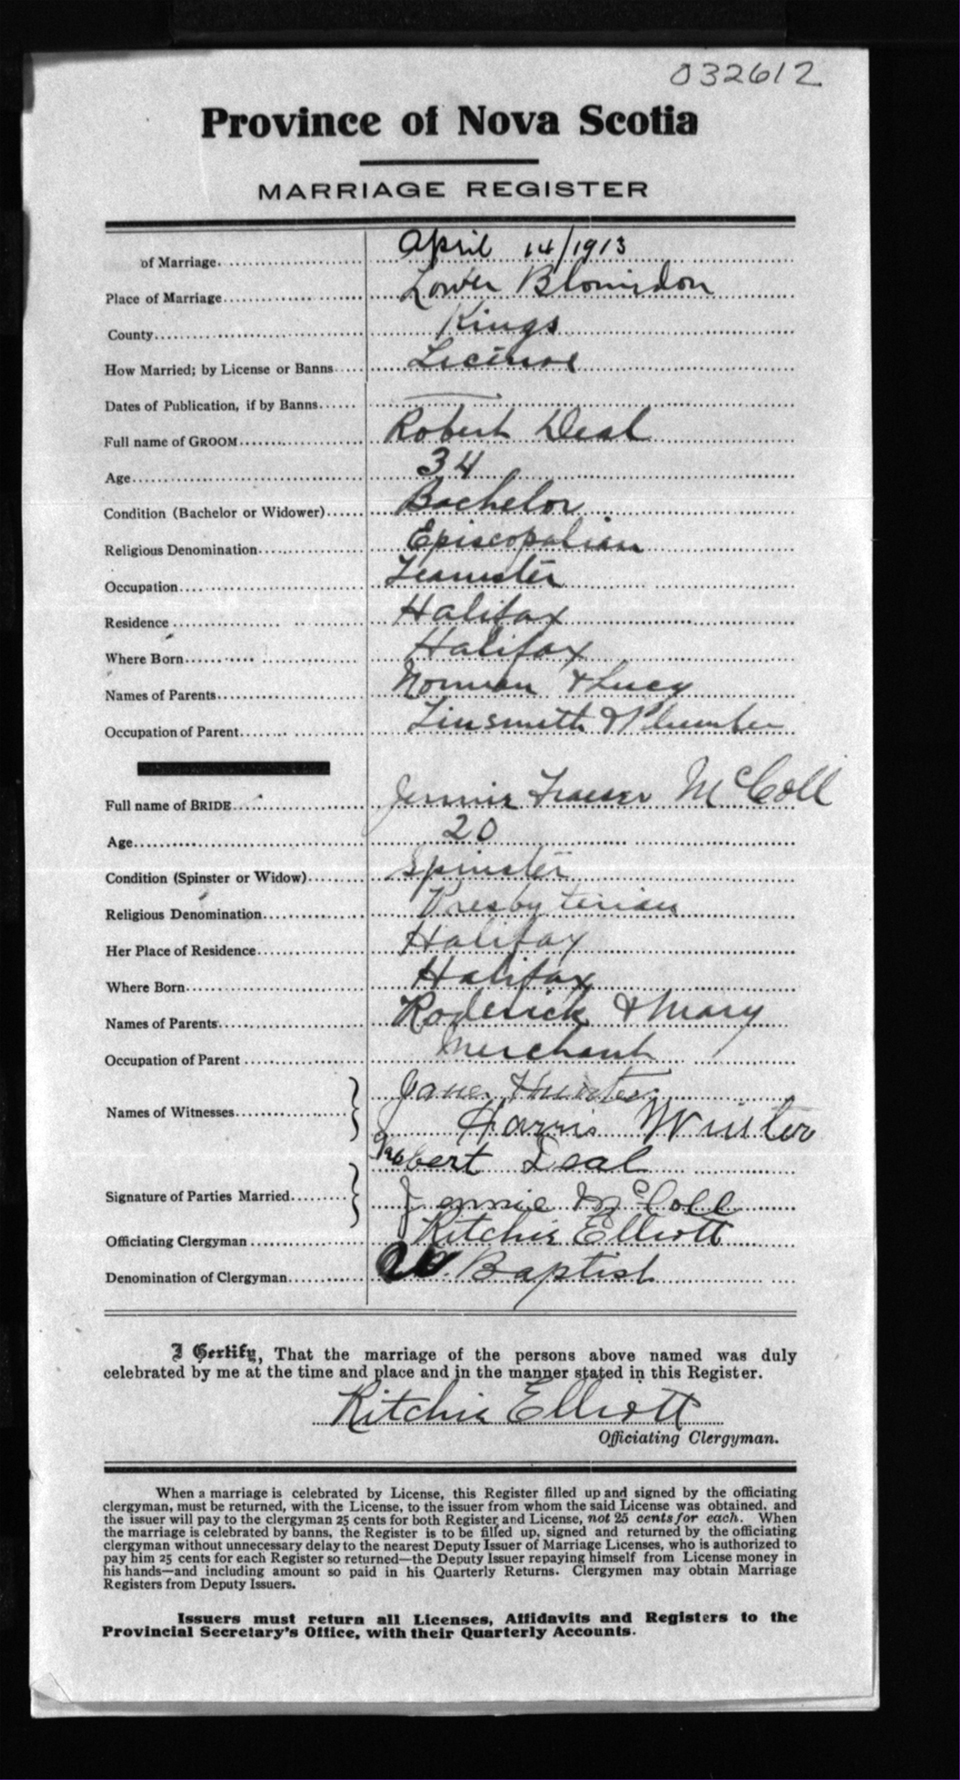 032612
Province of Nova Scotia
MARRIAGE REGISTER
of Marriage. April 14/1913
Place of Marriage Lower Blomidon
County Kings
How Married; by License or Banns License
Dates of Publication, if by Banns
Full name of GROOM Robert Deal
Age 34
Condition (Bachelor or Widower) Bachelor
Religious Denomination Episcopalian
Occupation Teamster
Residence Halifax
Where Born Halifax
Names of Parents Norman & Lucy
Occupation of Parent Tinsmith & Plumber
Full name of BRIDE Jennie Fraser McColl
Age 20
Condition (Spinster or Widow) Spinster
Religious Denomination Presbyterian
Her Place of Residence Halifax
Where Born Halifax
Names of Parents Roderick & Mary
Occupation of Parent Merchant
Names of Witnesses Jane Hunter
Harris Winter
Robert Deal
Signature of Parties Married Jennie McColl
Officiating Clergyman Ritchie Elliott
Denomination of Clergyman Baptist
I Certify, That the marriage of the persons above named was duly
celebrated by me at the time and place and in the manner stated in this Register.
Ritchie Elliott
Officiating Clergyman.
When a marriage is celebrated by License, this Register filled up and signed by the officiating
clergyman, must be returned, with the License, to the issuer from whom the said License was obtained, and
the issuer will pay to the clergyman 25 cents for both Register and License, not 25 cents for each. When
the marriage is celebrated by banns, the Register is to be filled up, signed and returned by the officiating
clergyman without unnecessary delay to the nearest Deputy Issuer of Marriage Licenses, who is authorized to
pay him 25 cents for each Register so returned—the Deputy Issuer repaying himself from License money in
his hands—and including amount so paid in his Quarterly Returns. Clergymen may obtain Marriage
Registers from Deputy Issuers.
Issuers must return all Licenses, Affidavits and Registers to the
Provincial Secretary's Office, with their Quarterly Accounts.